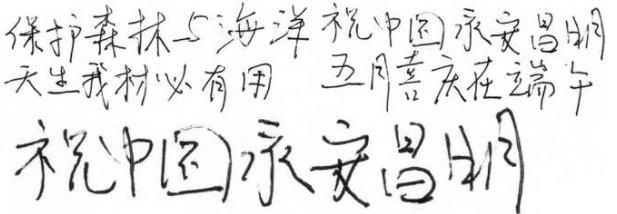 保护森林与海洋 祝中国永安昌明
天生我材必有用 五月喜庆在端午
祝中国永安昌明